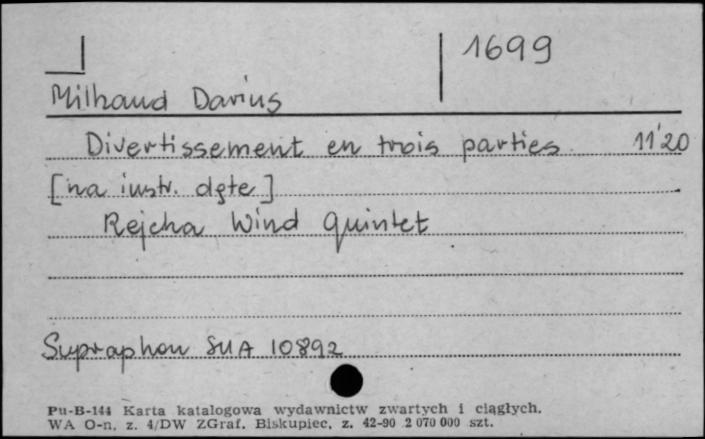 1699
Milhaud Darius
Divertissement en trois parties. 11'20
[na instr. dęte]
Rejcha Wind Quintet
Supraphon SUA 10892
Pu-B-144 Karta katalogowa wydawnictw zwartych i ciągłych.
WA O-n, z. 4/DW ZGraf. Biskupiec, z. 42-90 2 070 000 szt.